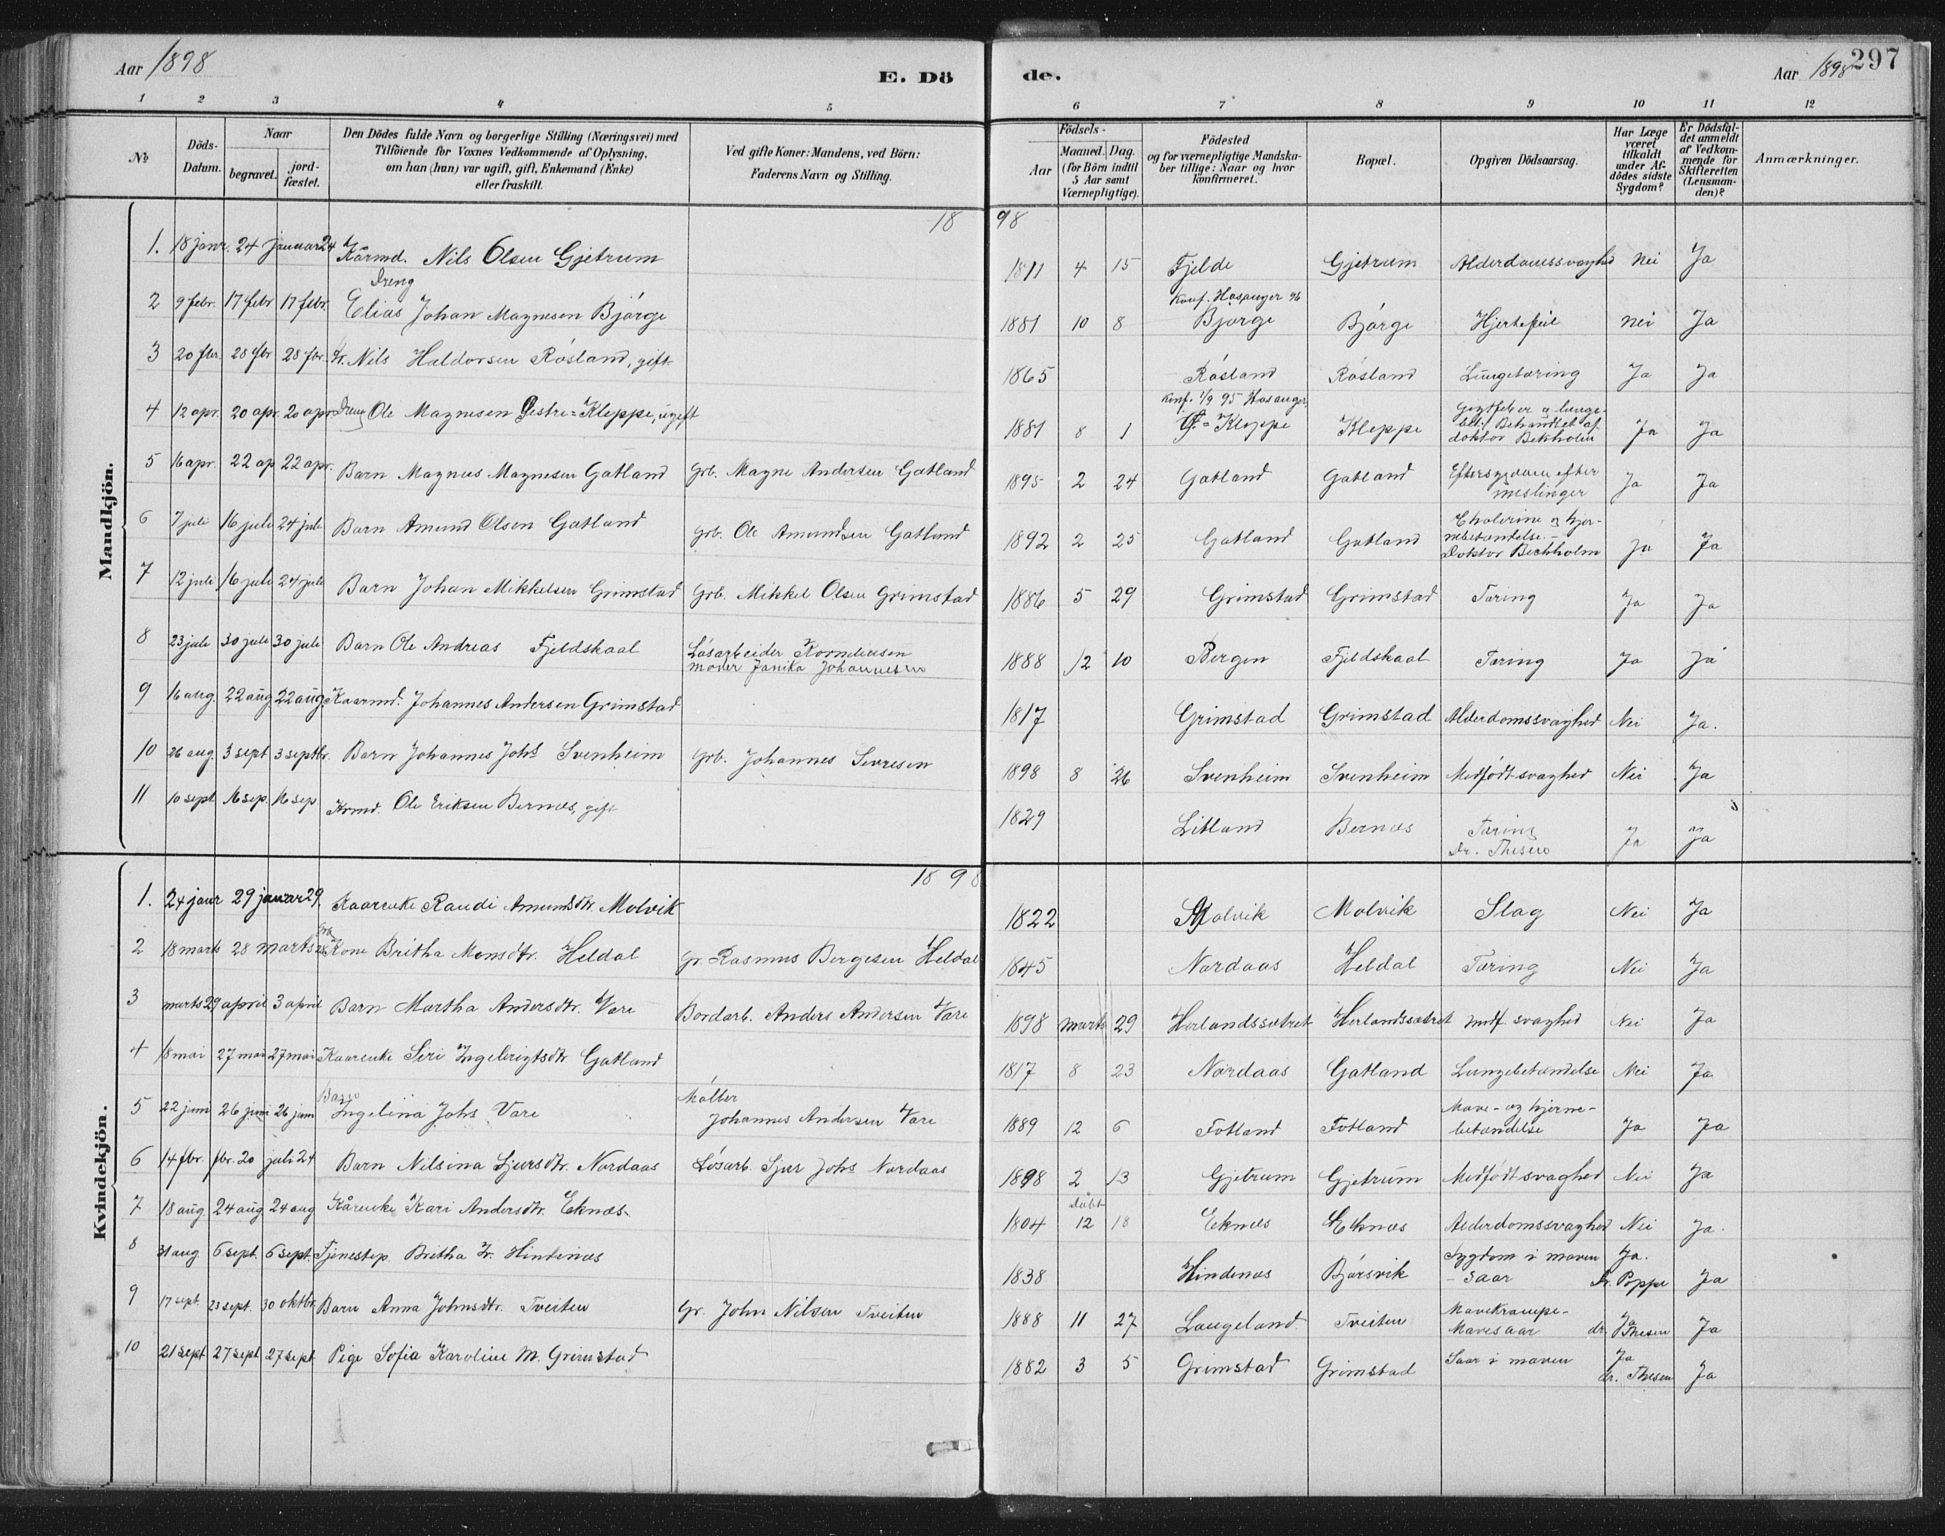 Aar 1898
E. Dö
de.
Aar 1898
297
1 2 3 4 5
6 7 8 9 10 11 12
No
Döds-Datum.
Naar
begravet.
jord-fæstet.
Den Dödes fulde Navn og borgerlige Stilling (Næringsvei) med
Tilföiende for Voxnes Vedkommende af Oplysning,
om han (hun) var ugift, gift, Enkemand (Enke)
eller fraskilt.
Ved gifte Koner: Mandens, ved Börn:
Faderens Navn og Stilling.
Födsels-
Aar
Maaned. Dag.
(for Börn indtil
5 Aar samt
Værnepligtige).
Födested
og for værnepligtige Mandska-
ber tillige: Naar og hvor
konfirmeret.
Bopæl.
Opgiven Dödsaarsag.
Har Læge
været
tilkaldt
under Af-
dödes sidste
Sygdom?
Er Dödsfal-
det anmeldt
af Vedkom-
mende for
Skifteretten
(Lensman-
den)?
Anmærkninger.
18 98
Mandkjön.
1. 18 janr. 24 januar 24 Kårmd. Nils Olsen Gjetrum 1811 4 15 Fjelde Gjetrum Alderdomssvaghed Nei Ja
Dreng
Konf. Hosanger 96
2 9 febr. 17 febr 17 febr. Elias Johan Magnesen Bjørge 1881 10 8 Bjørge Bjørge Hjertefeil Nei Ja
3 20 fbr. 28 fbr 28 fbr. Gr. Nils Haldorsen Røsland, gift 1865 Røsland Røsland Lungetæring Ja Ja
Konf. 1/9 95 Hosanger
4 12 apr. 20 apr. 20 apr. Dreng Ole Magnesen Kleppe, ugift 1881 8 1 Kleppe Kleppe Gigtfeber og lunge-
Behandlet af
doktor Bekholm Ja Ja
5 16 apr. 22 ap 22 apr. Barn Magnus Magnesen Gatland Grb. Magne Andersen Gatland 1895 2 24 Gatland Gatland Eftersygdom efter
meslinger Ja Ja
6 7 juli 16 juli 24 juli Barn Amund Olsen Gatland Grb. Ole Amundsen Gatland 1892 2 25 Gatland Gatland Cholerine og hjer-
nebetændelse.-
Doktor Bechholm Ja Ja
7 12 juli 16 juli 24 juli Barn Johan Mikkelsen Grimstad Grb. Mikkel Olsen Grimstad 1886 5 29 Grimstad Grimstad Tæring Ja Ja
8 23 juli 30 juli 30 juli Barn Ole Andreas Fjeldskaal Løsarbeider Korneliusen
moder Janika Johannesen 1888 12 10 Bergen Fjeldskaal Tæring Ja Ja
9 16 aug. 22 aug 22 aug. Kaarmd. Johannes Andersen Grimstad 1817 Grimstad Grimstad Alderdomssvaghed Nei Ja.
10 26 aug. 3 sept 3 septbr. Barn Johannes Johs Svenheim Grb. Johannes Iversen 1898 8 26 Svenheim Svenheim Medfødt svaghed Nei Ja
11 10 sept 16 sep. 16 sep. Krmd. Ole Eriksen Bernæs, gift 1829 Litland Bernæs Tæring
Dr. Thesen Ja Ja
1898
Kvindekjön.
1. 24 janr 29 januar 29. Kaarenke Randi Amundsdtr. Molvik 1822 Molvik Molvik Slag Nei Ja
2 18 marts 28 marts 28 Kone Britha Monsdtr. Heldal Gr. Rasmus Børgesen Heldal 1845 Nordaas Heldal Tæring Nei Ja
3 marts 29 april 3 april Barn Martha Andersdtr. Vare Bordarb. Anders Andersen Vare 1898 marts 29 Herlandssætret Herlandssætret Medf. svaghed Nei Ja
4 18 mai 27 mai 27 mai Kaarenke Siri Ingebrigtsdtr. Gatland 1817 8 23 Nordaas Gatland Lungebetændelse Nei Ja
5 22 juni 26 juni 26 juni Barn Ingelina Johs Vare Møller
Johannes Andersen Vare 1889 12 6 Fotland Fotland Mave- og hjerne-
betændelse Ja Ja
6 14 fbr. fbr. 20 juli 24 Barn Nilsina Sjursdtr. Nordaas Løsarb. Sjur Johs Nordaas 1898 2 13 Gjetrum Gjetrum Medfødt svaghed Nei Ja
døbt
7 18 aug. 24 aug 24 aug Kårenke Kari Andersdtr. Eknæs 1804 12 18 Eknæs Eknæs Alderdomssvaghed Nei Ja.
8 31 aug 6 sept. 6 sept. Tjenestep. Britha Hindenæs 1838 Hindenæs Bjørsvik Sygdom i maven
- saar Ja.
dr. Poppe Ja
9 17 sept. 23 sept. 30 oktbr. Barn Anna Johnsdtr. Tveiten Gr. John Nilsen Tveiten 1888 11 27 Langeland Tveiten Mavekrampe-
Mavesaar Ja
dr. Thesen Ja
10 21 sept 27 sept 27 sept. Pige Sofia Karoline M. Grimstad 1882 3 5 Grimstad Grimstad Saar i maven Ja
dr. Thesen Ja